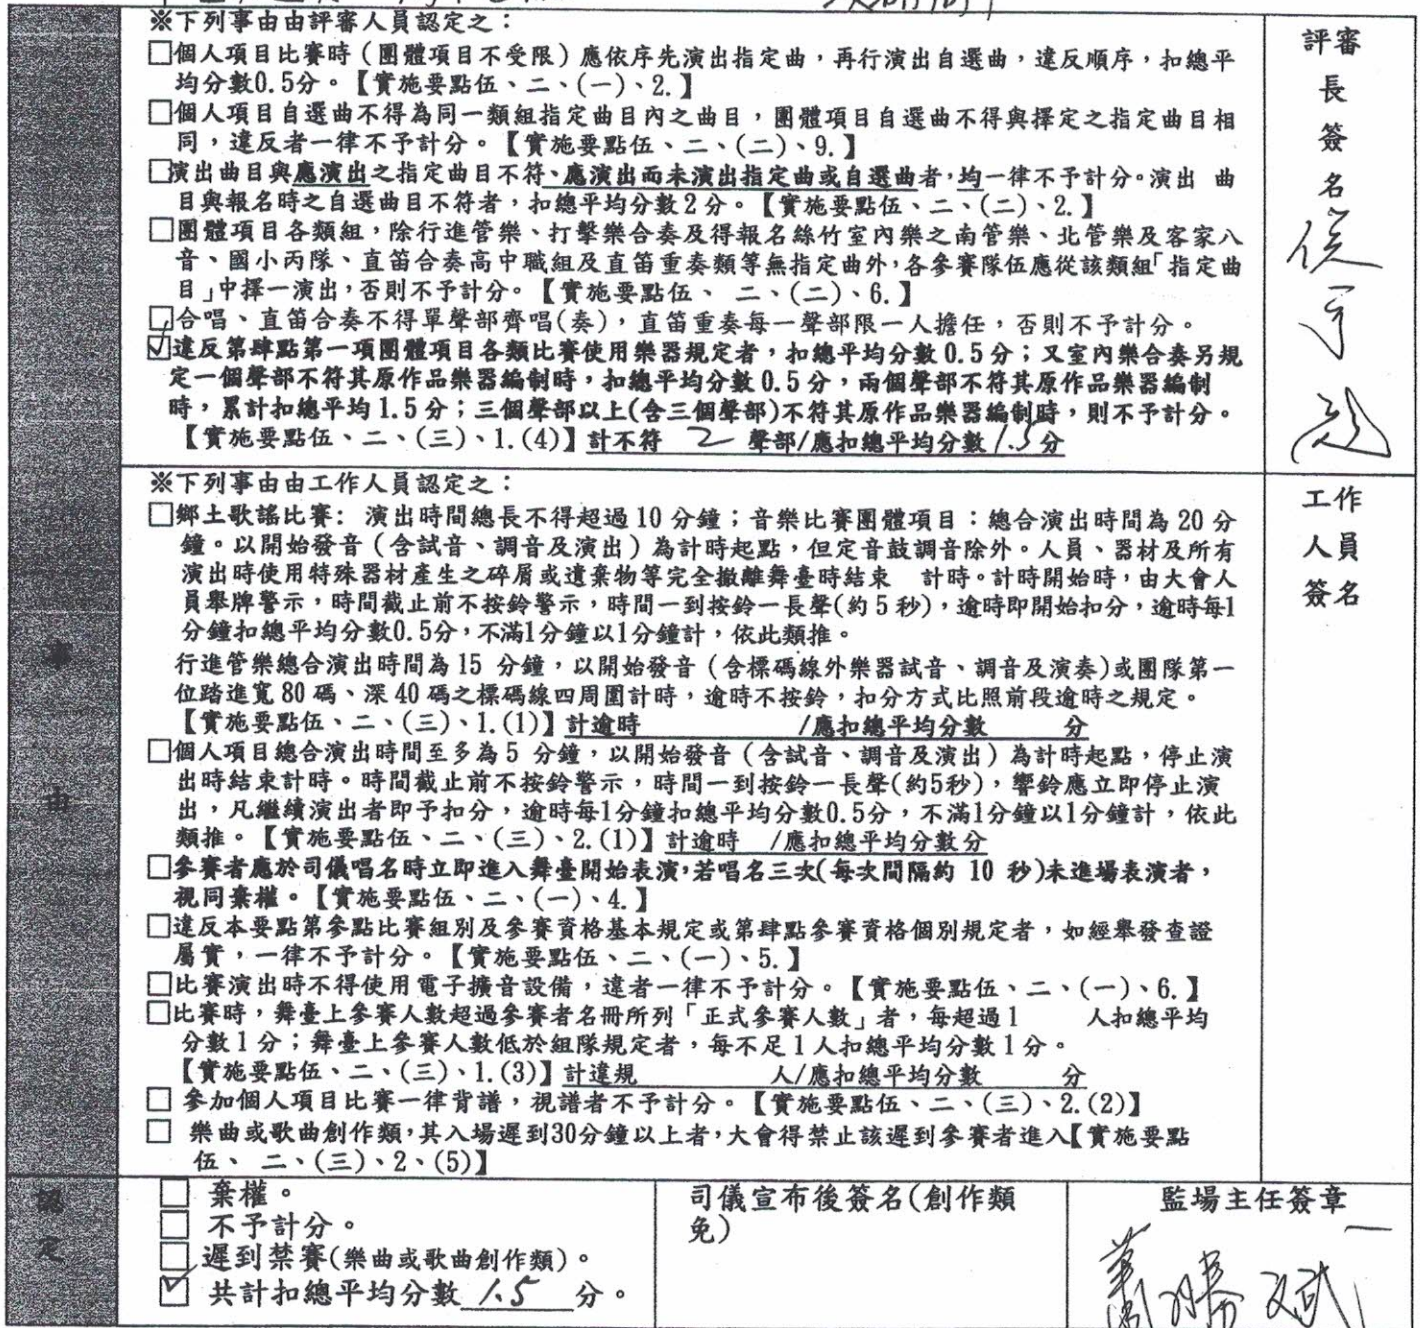 ※下列事由由評審人員認定之：
□個人項目比賽時（團體項目不受限）應依序先演出指定曲，再行演出自選曲，違反順序，扣總平
均分數0.5分。【實施要點伍、二、(一)、2.】
□個人項目自選曲不得為同一類組指定曲目內之曲目，團體項目自選曲不得與擇定之指定曲目相
同，違反者一律不予計分。【實施要點伍、二、(二)、9.】
□演出曲目與應演出之指定曲目不符、應演出而未演出指定曲或自選曲者，均一律不予計分。演出 曲
目與報名時之自選曲目不符者，扣總平均分數2分。【實施要點伍、二、(二)、2.】
□團體項目各類組，除行進管樂、打擊樂合奏及得報名絲竹室內樂之南管樂、北管樂及客家八
音、國小丙隊、直笛合奏高中職組及直笛重奏類等無指定曲外，各參賽隊伍應從該類組「指定曲
目」中擇一演出，否則不予計分。【實施要點伍、 二、(二)、6.】
□合唱、直笛合奏不得單聲部齊唱(奏)，直笛重奏每一聲部限一人擔任，否則不予計分。
☑違反第肆點第一項團體項目各類比賽使用樂器規定者，扣總平均分數 0.5 分；又室內樂合奏另規
定一個聲部不符其原作品樂器編制時，扣總平均分數 0.5 分，兩個聲部不符其原作品樂器編制
時，累計扣總平均 1.5 分；三個聲部以上(含三個聲部)不符其原作品樂器編制時，則不予計分。
【實施要點伍、二、(三)、1.(4)】計不符 2 聲部/應扣總平均分數 1.5 分
評審
長
簽
名
※下列事由由工作人員認定之：
□鄉土歌謠比賽： 演出時間總長不得超過 10 分鐘；音樂比賽團體項目：總合演出時間為 20 分
鐘。以開始發音（含試音、調音及演出）為計時起點，但定音鼓調音除外。人員、器材及所有
演出時使用特殊器材產生之碎屑或遺棄物等完全撤離舞臺時結束 計時。計時開始時，由大會人
員舉牌警示，時間截止前不按鈴警示，時間一到按鈴一長聲(約 5 秒)，逾時即開始扣分，逾時每1
分鐘扣總平均分數0.5分，不滿1分鐘以1分鐘計，依此類推。
行進管樂總合演出時間為 15 分鐘，以開始發音（含標碼線外樂器試音、調音及演奏)或團隊第一
位踏進寬 80 碼、深 40 碼之標碼線四周圍計時，逾時不按鈴，扣分方式比照前段逾時之規定。
【實施要點伍、二、(三)、1.(1)】計逾時 /應扣總平均分數 分
□個人項目總合演出時間至多為 5 分鐘，以開始發音（含試音、調音及演出）為計時起點，停止演
出時結束計時。時間截止前不按鈴警示，時間一到按鈴一長聲(約5秒)，響鈴應立即停止演
出，凡繼續演出者即予扣分，逾時每1分鐘扣總平均分數0.5分，不滿1分鐘以1分鐘計，依此
類推。【實施要點伍、二、(三)、2.(1)】計逾時 /應扣總平均分數分
□參賽者應於司儀唱名時立即進入舞臺開始表演，若唱名三次(每次間隔約 10 秒)未進場表演者，
視同棄權。【實施要點伍、二、(一)、4.】
□違反本要點第參點比賽組別及參賽資格基本規定或第肆點參賽資格個別規定者，如經舉發查證
屬實，一律不予計分。【實施要點伍、二、(一)、5.】
□比賽演出時不得使用電子擴音設備，違者一律不予計分。【實施要點伍、二、(一)、6.】
□比賽時，舞臺上參賽人數超過參賽者名冊所列「正式參賽人數」者，每超過1 人扣總平均
分數 1 分；舞臺上參賽人數低於組隊規定者，每不足 1 人扣總平均分數 1 分。
【實施要點伍、二、(三)、1.(3)】計違規 人/應扣總平均分數 分
□ 參加個人項目比賽一律背譜，視譜者不予計分。【實施要點伍、二、(三)、2.(2)】
□ 樂曲或歌曲創作類，其入場遲到30分鐘以上者，大會得禁止該遲到參賽者進入【實施要點
伍、 二、(三)、2、(5)】
工作
人員
簽名
事
由
認
定
□ 棄權。
□ 不予計分。
□ 遲到禁賽(樂曲或歌曲創作類)。
☑ 共計扣總平均分數 1.5 分。
司儀宣布後簽名(創作類
免)
監場主任簽章